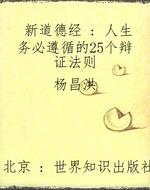 新道德经 : 人生
务必遵循的25个辩
证法则
杨昌洪
北京 : 世界知识出版社